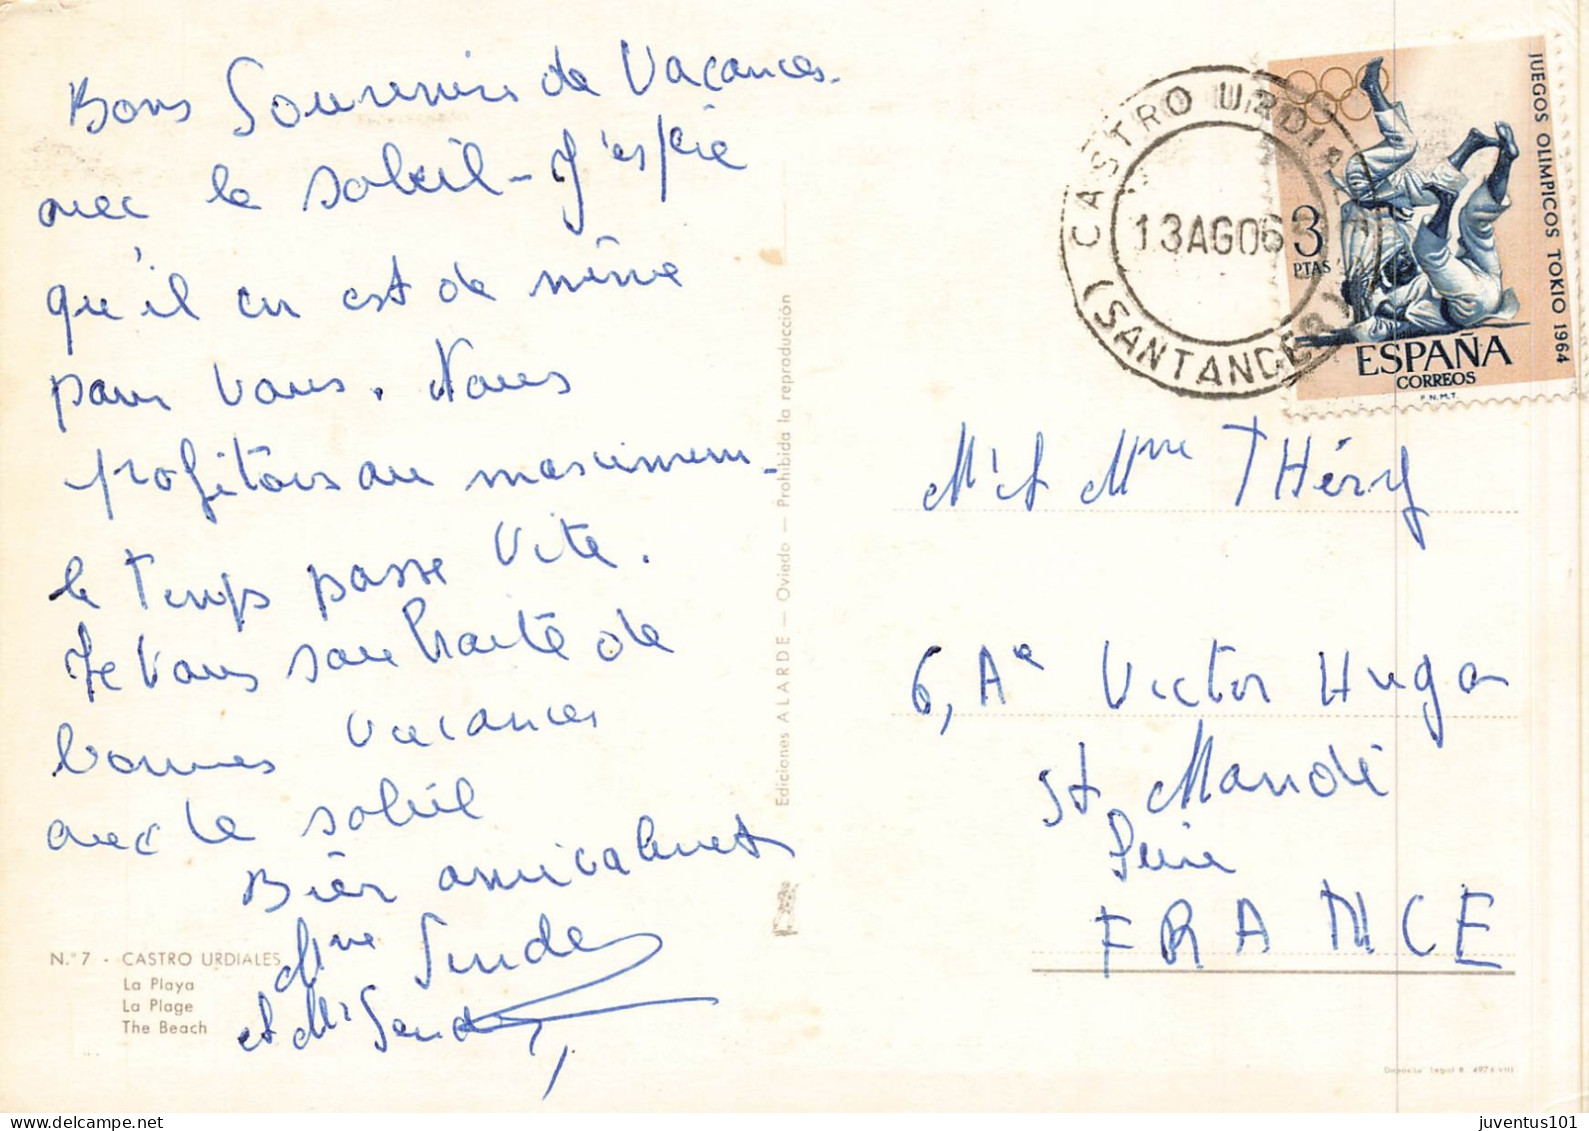 Bons Souvenirs de Vacances.
avec le soleil - J'espère
qu'il en est de même
pour vous. Nous
profitons au maximum -
le temps passe vite.
Je vous souhaite de
bonnes vacances
avec le soleil
Bien amicalement
Mme
et Mr
N.º 7 - CASTRO URDIALES
La Playa
La Plage
The Beach
Ediciones ALARDE - Oviedo - Prohibida la reproducción
CASTRO URDIALES
13 AGO 6
(SANTANDER)
JUEGOS OLIMPICOS TOKIO 1964
3
PTAS
ESPAÑA
CORREOS
F.N.M.T.
Mr et Mme THéry
6, Ae Victor Hugo
St Mandé
Seine
FRANCE
Depósito Legal B.
juventus101